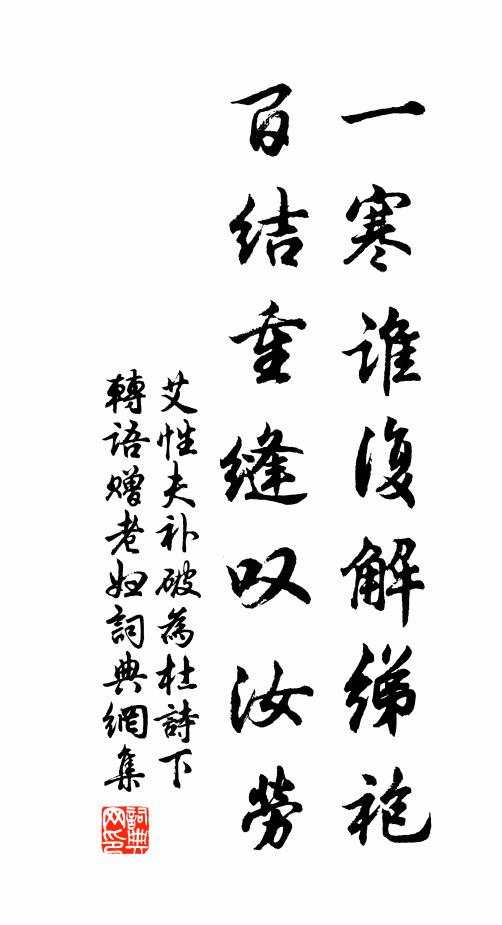 一寒誰復解綈袍
百结重縫叹汝勞
艾性夫补破為杜詩下
轉语赠老妪詞典網集
詞典网印